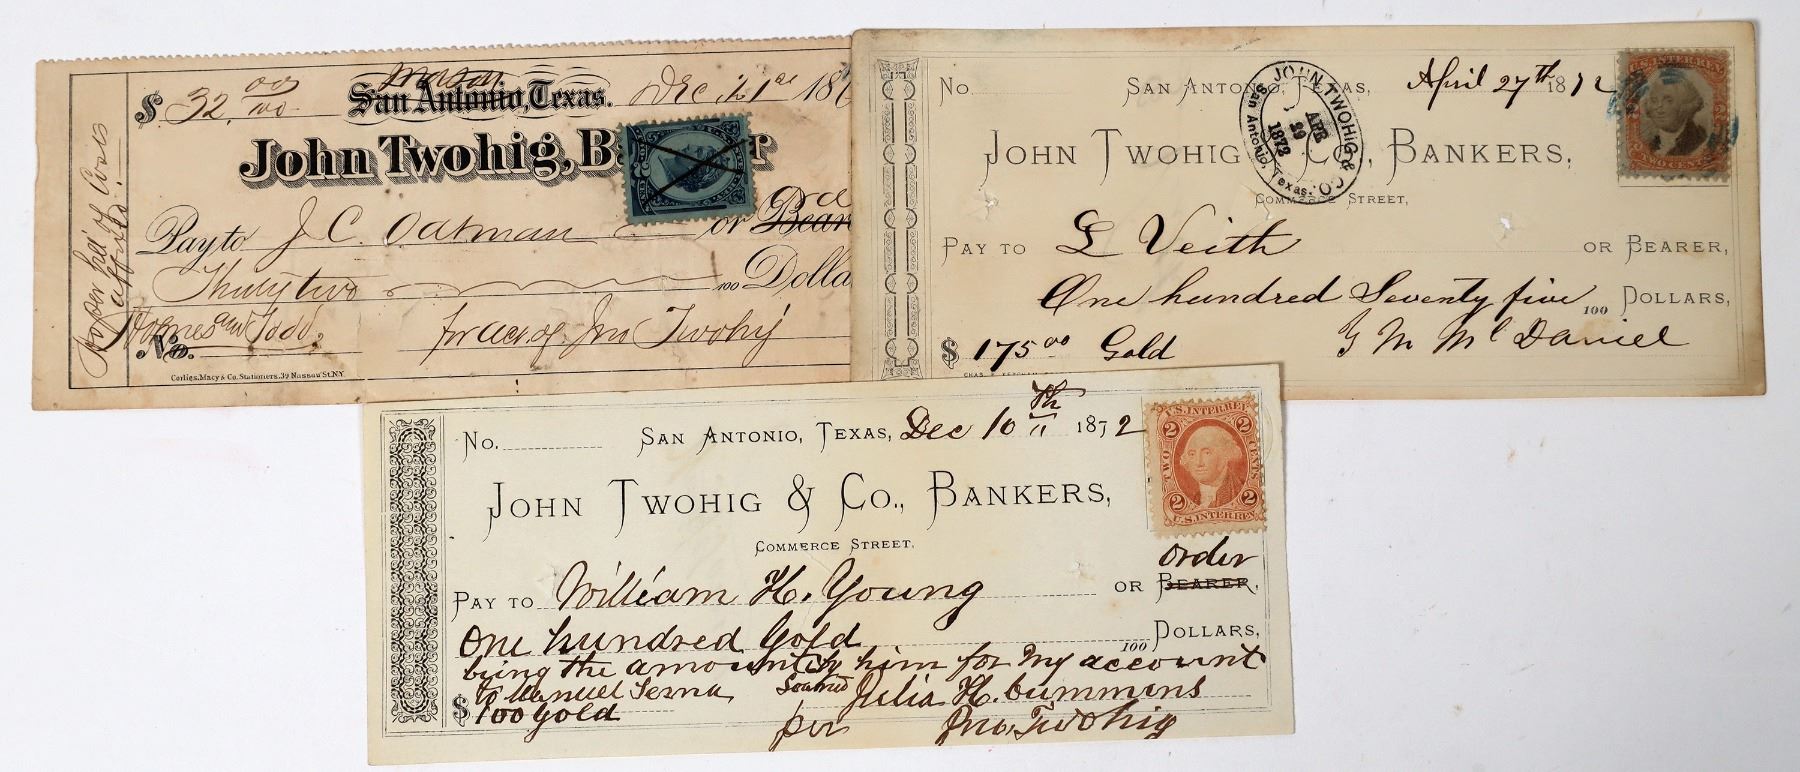 $ 32.00/100
Mason
San Antonio, Texas. Dec 21st 18
John Twohig, B r
Pay to J C. Oatman or Bear
Thirty two 100 Dolla
for acct. of Jno Twohig
No.
Corlies, Macy & Co. Stationers. 39 Nassau St. N.Y.
No. San Antonio, Texas, April 27th 1872
U.S. INTER. REV.
TWO CENTS
John Twohig & Co., Bankers,
JOHN TWOHIG & CO.
APR 29 1873
San Antonio, Texas.
Commerce Street,
Pay to L Veith or Bearer,
One hundred Seventy five 100 Dollars,
$ 175.00 Gold G M McDaniel
No. San Antonio, Texas, Dec 10th 1872
U.S. INTER. REV.
2 2
TWO CENTS
2 2
U.S. INTER. REV.
John Twohig & Co., Bankers,
Commerce Street,
order
Pay to William H. Young or Bearer,
One hundred Gold 100 Dollars,
being the amount by him for my account
to Manuel Serna Julia H. Cummins
$ 100 Gold per Jno. Twohig